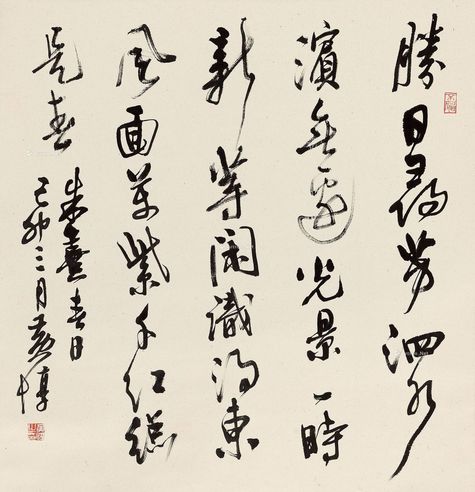 勝日尋芳泗水
濱無邊光景一時
新等閑識得東
風面萬紫千紅總
是春
朱熹春日
己卯三月黃惇